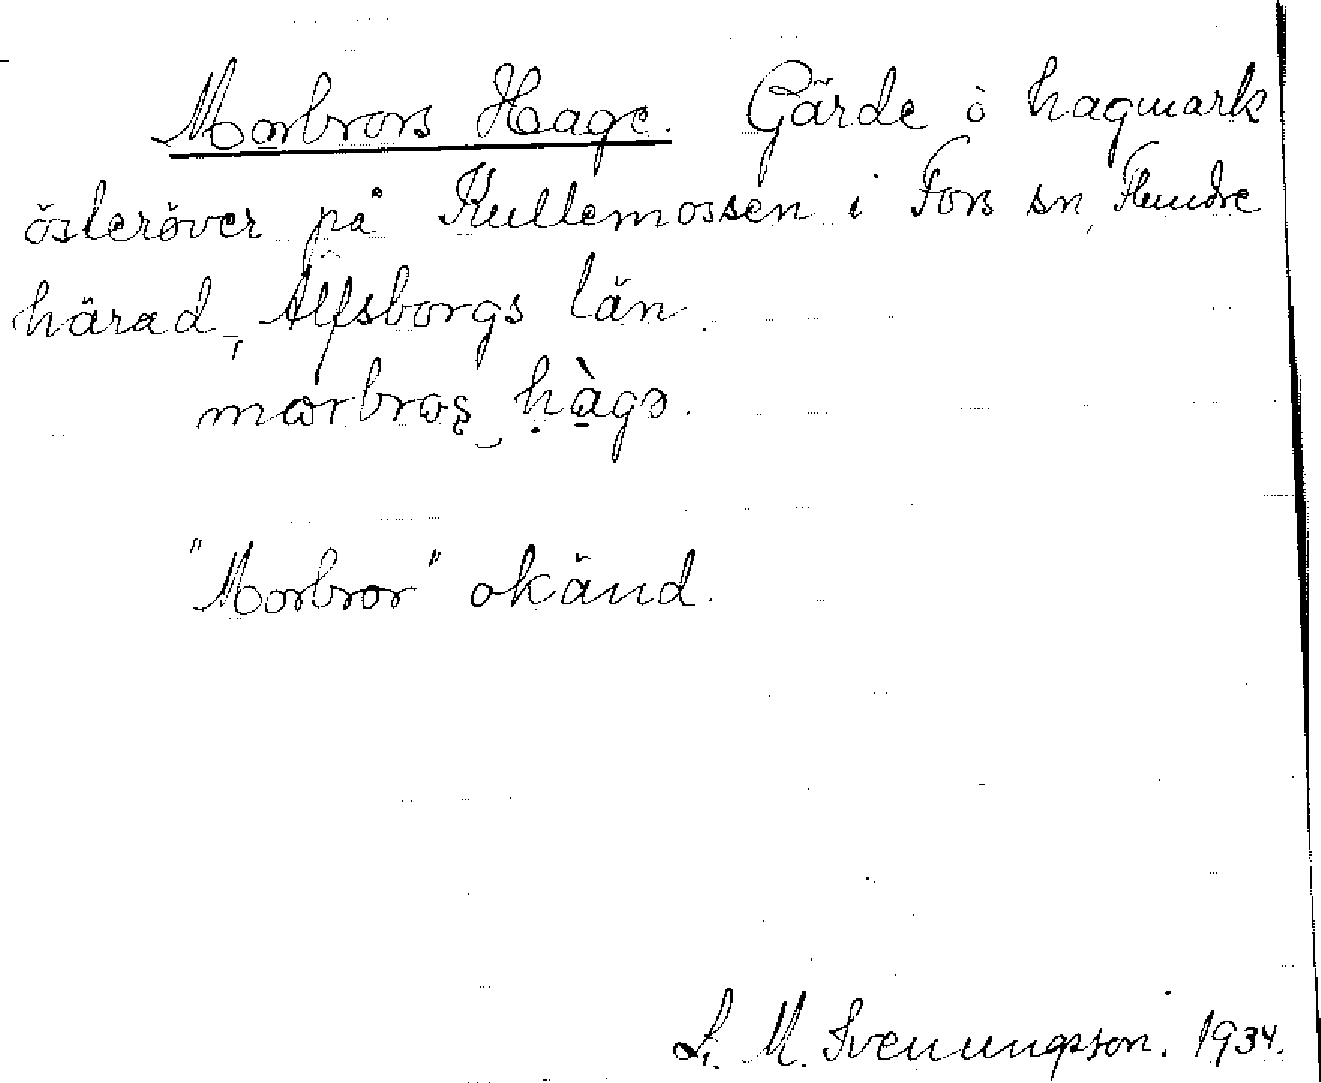 Morbrors Hage. Gärde o hagmark
österöver på Kullemossen i Fors sn, Flundre
härad, Älfsborgs län.
morbros hàgə.
"Morbror" okänd.
L. M. Svenungsson. 1934.